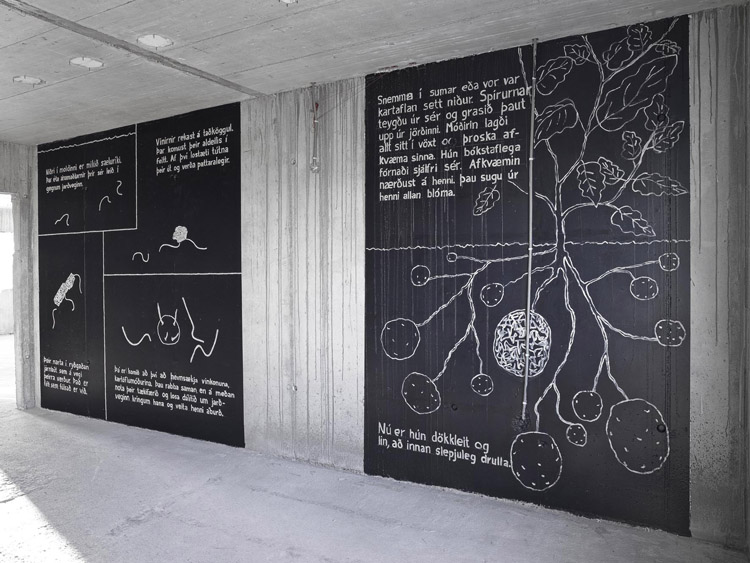 Niðri í moldinni er mikið sæluríki.
Þar eru ánamaðkarnir þér sér leið í
gegnum jarðveginn.
Vinirnir rekast á taðköggul.
Þar komust þeir aldeilis í
feitt. Af því lostæti tútna
þeir út og verða pattaralegir.
Þeir narta í ryðgaðan
járnbút sem á vegi
þeirra verður. Það er
lítt sem fúlsað er við.
Því er komið að því að þeim
sækja vinkonuna,
kartöflumóðurina. Þau rabba saman en á meðan
nota þeir tækifærið og losa dálítið um jarð-
veginn kringum hana og veita henni áburð.
Snemma í sumar eða vor var
kartaflan sett niður. Spírurnar
teygðu úr sér og grasið þaut
upp úr jörðinni. Móðirin lagði
allt sitt í vöxt og þroska af-
kvæma sinna. Hún bókstaflega
fórnaði sjálfri sér. Afkvæmin
nærðust á henni. Þau sugu úr
henni allan blóma.
Nú er hún dökkleit og
lin, að innan slepjuleg drulla.